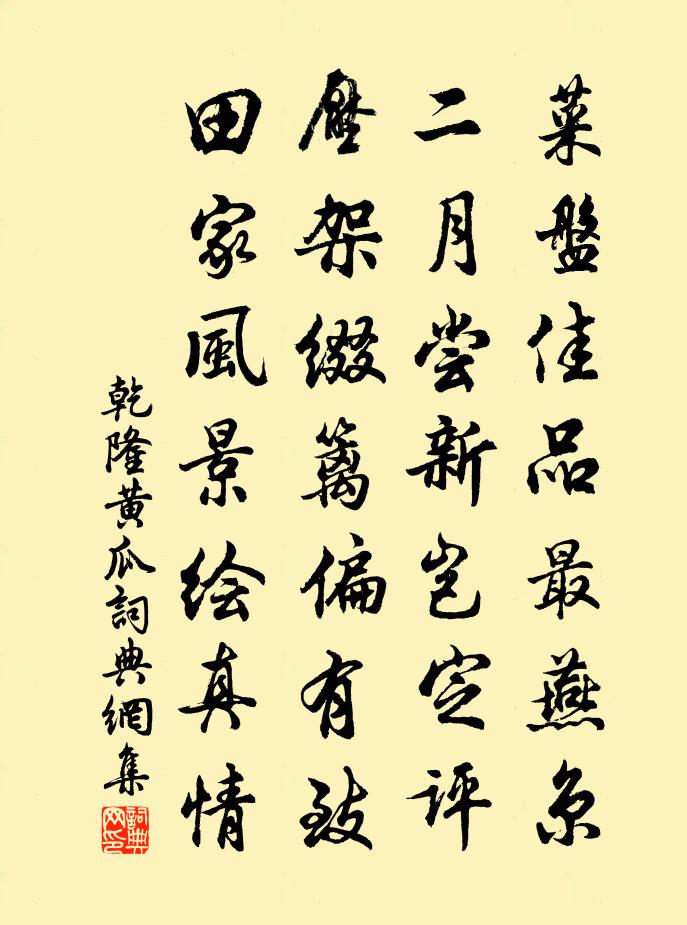 菜盤佳品最燕京
二月尝新岂定评
壓架綴篱偏有致
田家風景绘真情
乾隆黄瓜詞典網集
詞典网印